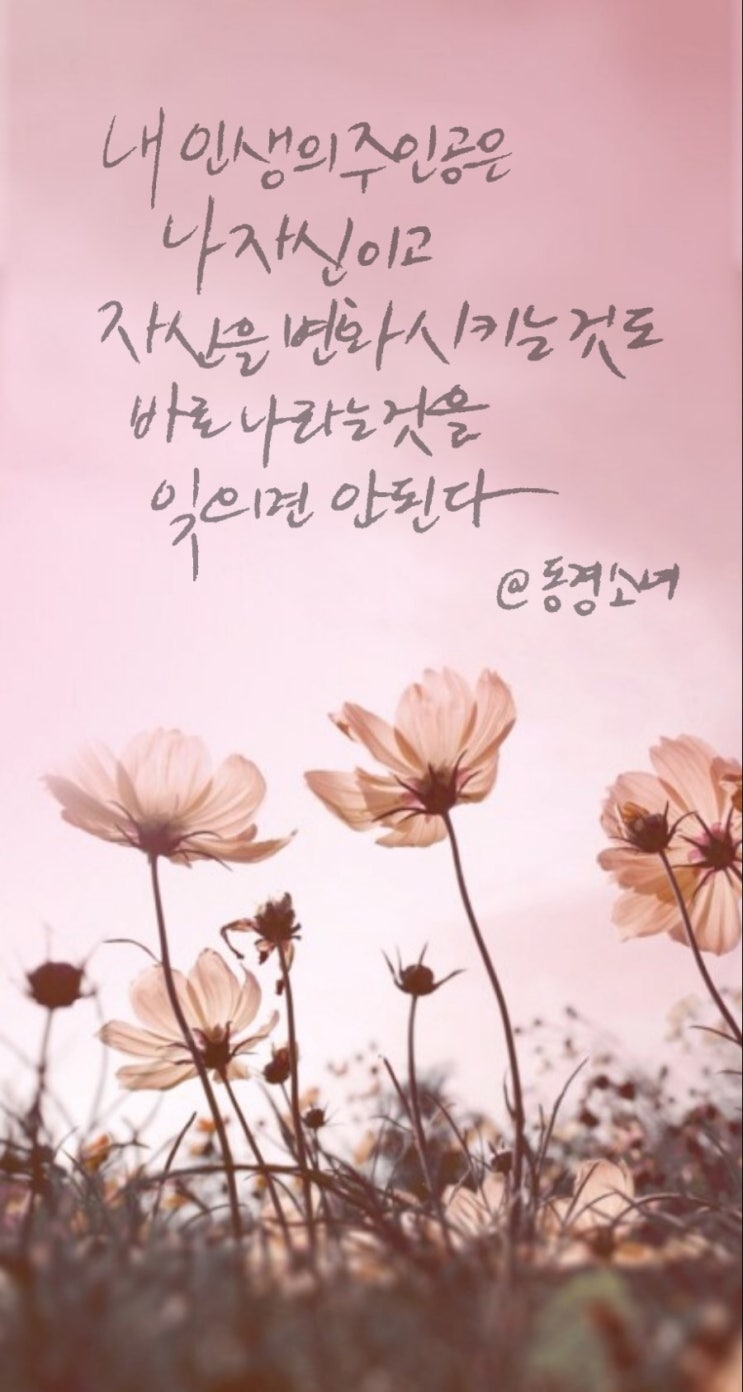 내 인생의 주인공은
나 자신이고
자신을 변화 시키는 것도
바로 나라는 것을
잊으면 안된다
@동경소녀